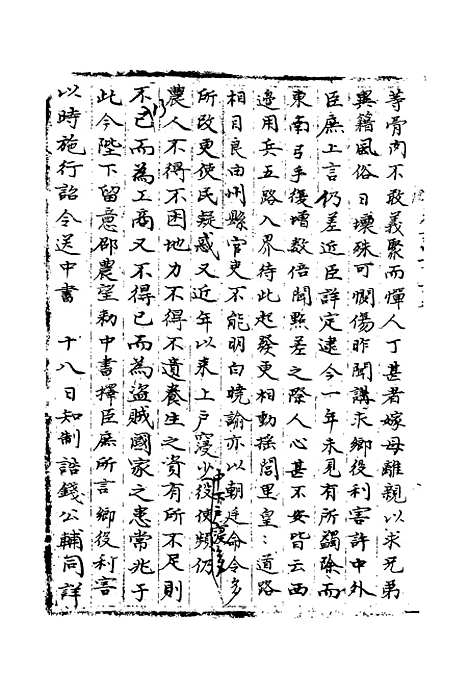 等骨肉不敢義聚而憚人丁甚者嫁母離親以求兄弟
異籍風俗日壞殊可憫傷昨聞講求鄉役利害許中外
臣庶上言仍差近臣詳定逮今一年未見有所蠲除而
東南弓手復增數倍聞點差之際人心甚不安皆云西
邊用兵五路入界待此起發更相動搖閭里皇:道路
相目良由州縣官吏不能明白曉諭亦以朝廷命令多
所改更使民疑惑又近年以來上戶寖少中下戶寖多役使頻仍
農人不得不困地力不得不遺養生之資有所不足則
不已而為工商又不得已而為盜賊國家之患常兆于
此今陛下留意邵農望勑中書擇臣庶所言鄉役利害
以時施行詔令送中書　十八日知制誥錢公輔同詳